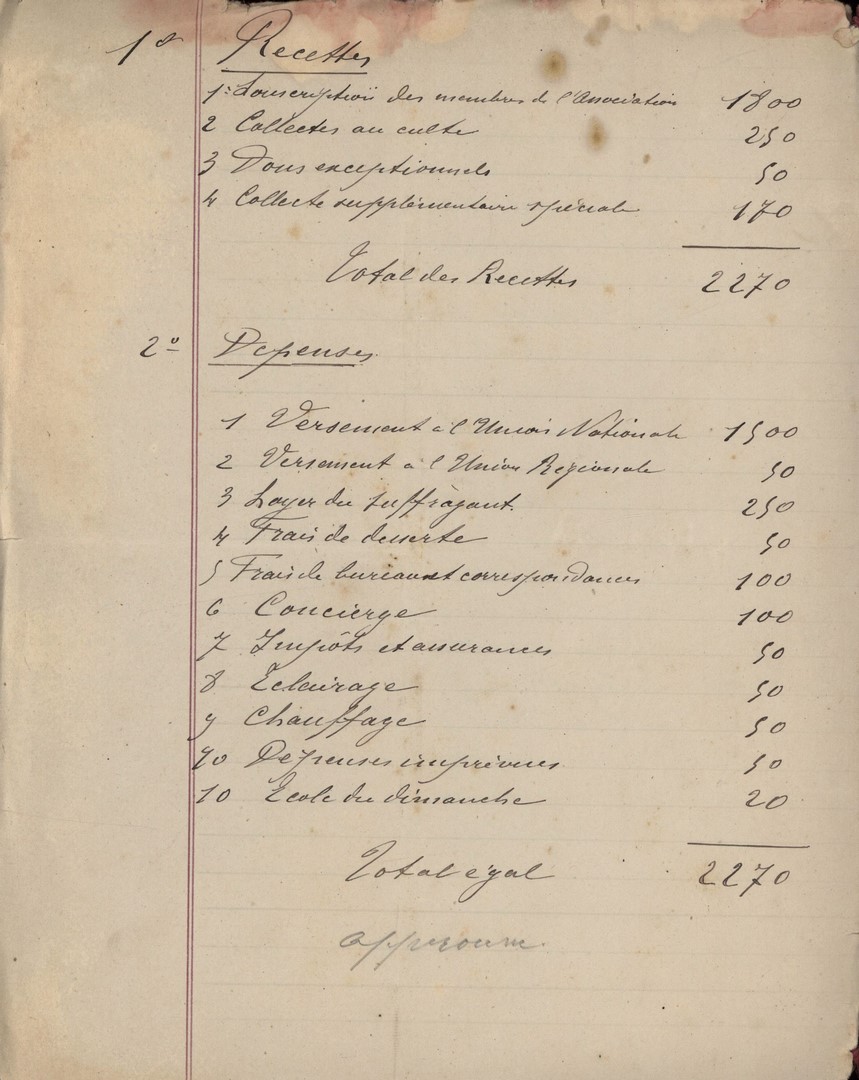 1º Recettes
1º Souscription des membres de l'Association 1800
2 Collectes au culte 250
3 Dons exceptionnels 50
4 Collecte supplémentaire spéciale 170
Total des Recettes 2270
2º Depenses
1 Versement à l'Union Nationale 1500
2 Versement à l'Union Regionale 50
3 Loyer du suffragant. 250
4 Frais de desserte 50
5 Frais de bureau et correspondances 100
6 Concierge 100
7 Impôts et assurances 50
8 Eclairage 50
9 Chauffage 50
10 Dépenses imprévues 50
10 Ecole du dimanche 20
Total égal 2270
approuvé